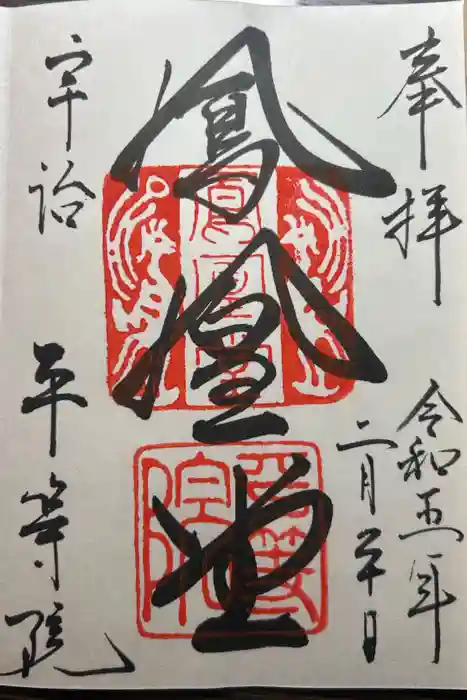 奉拝
令和五年
二月二十日
鳳凰堂
鳳凰堂
平等院
宇治
平等院